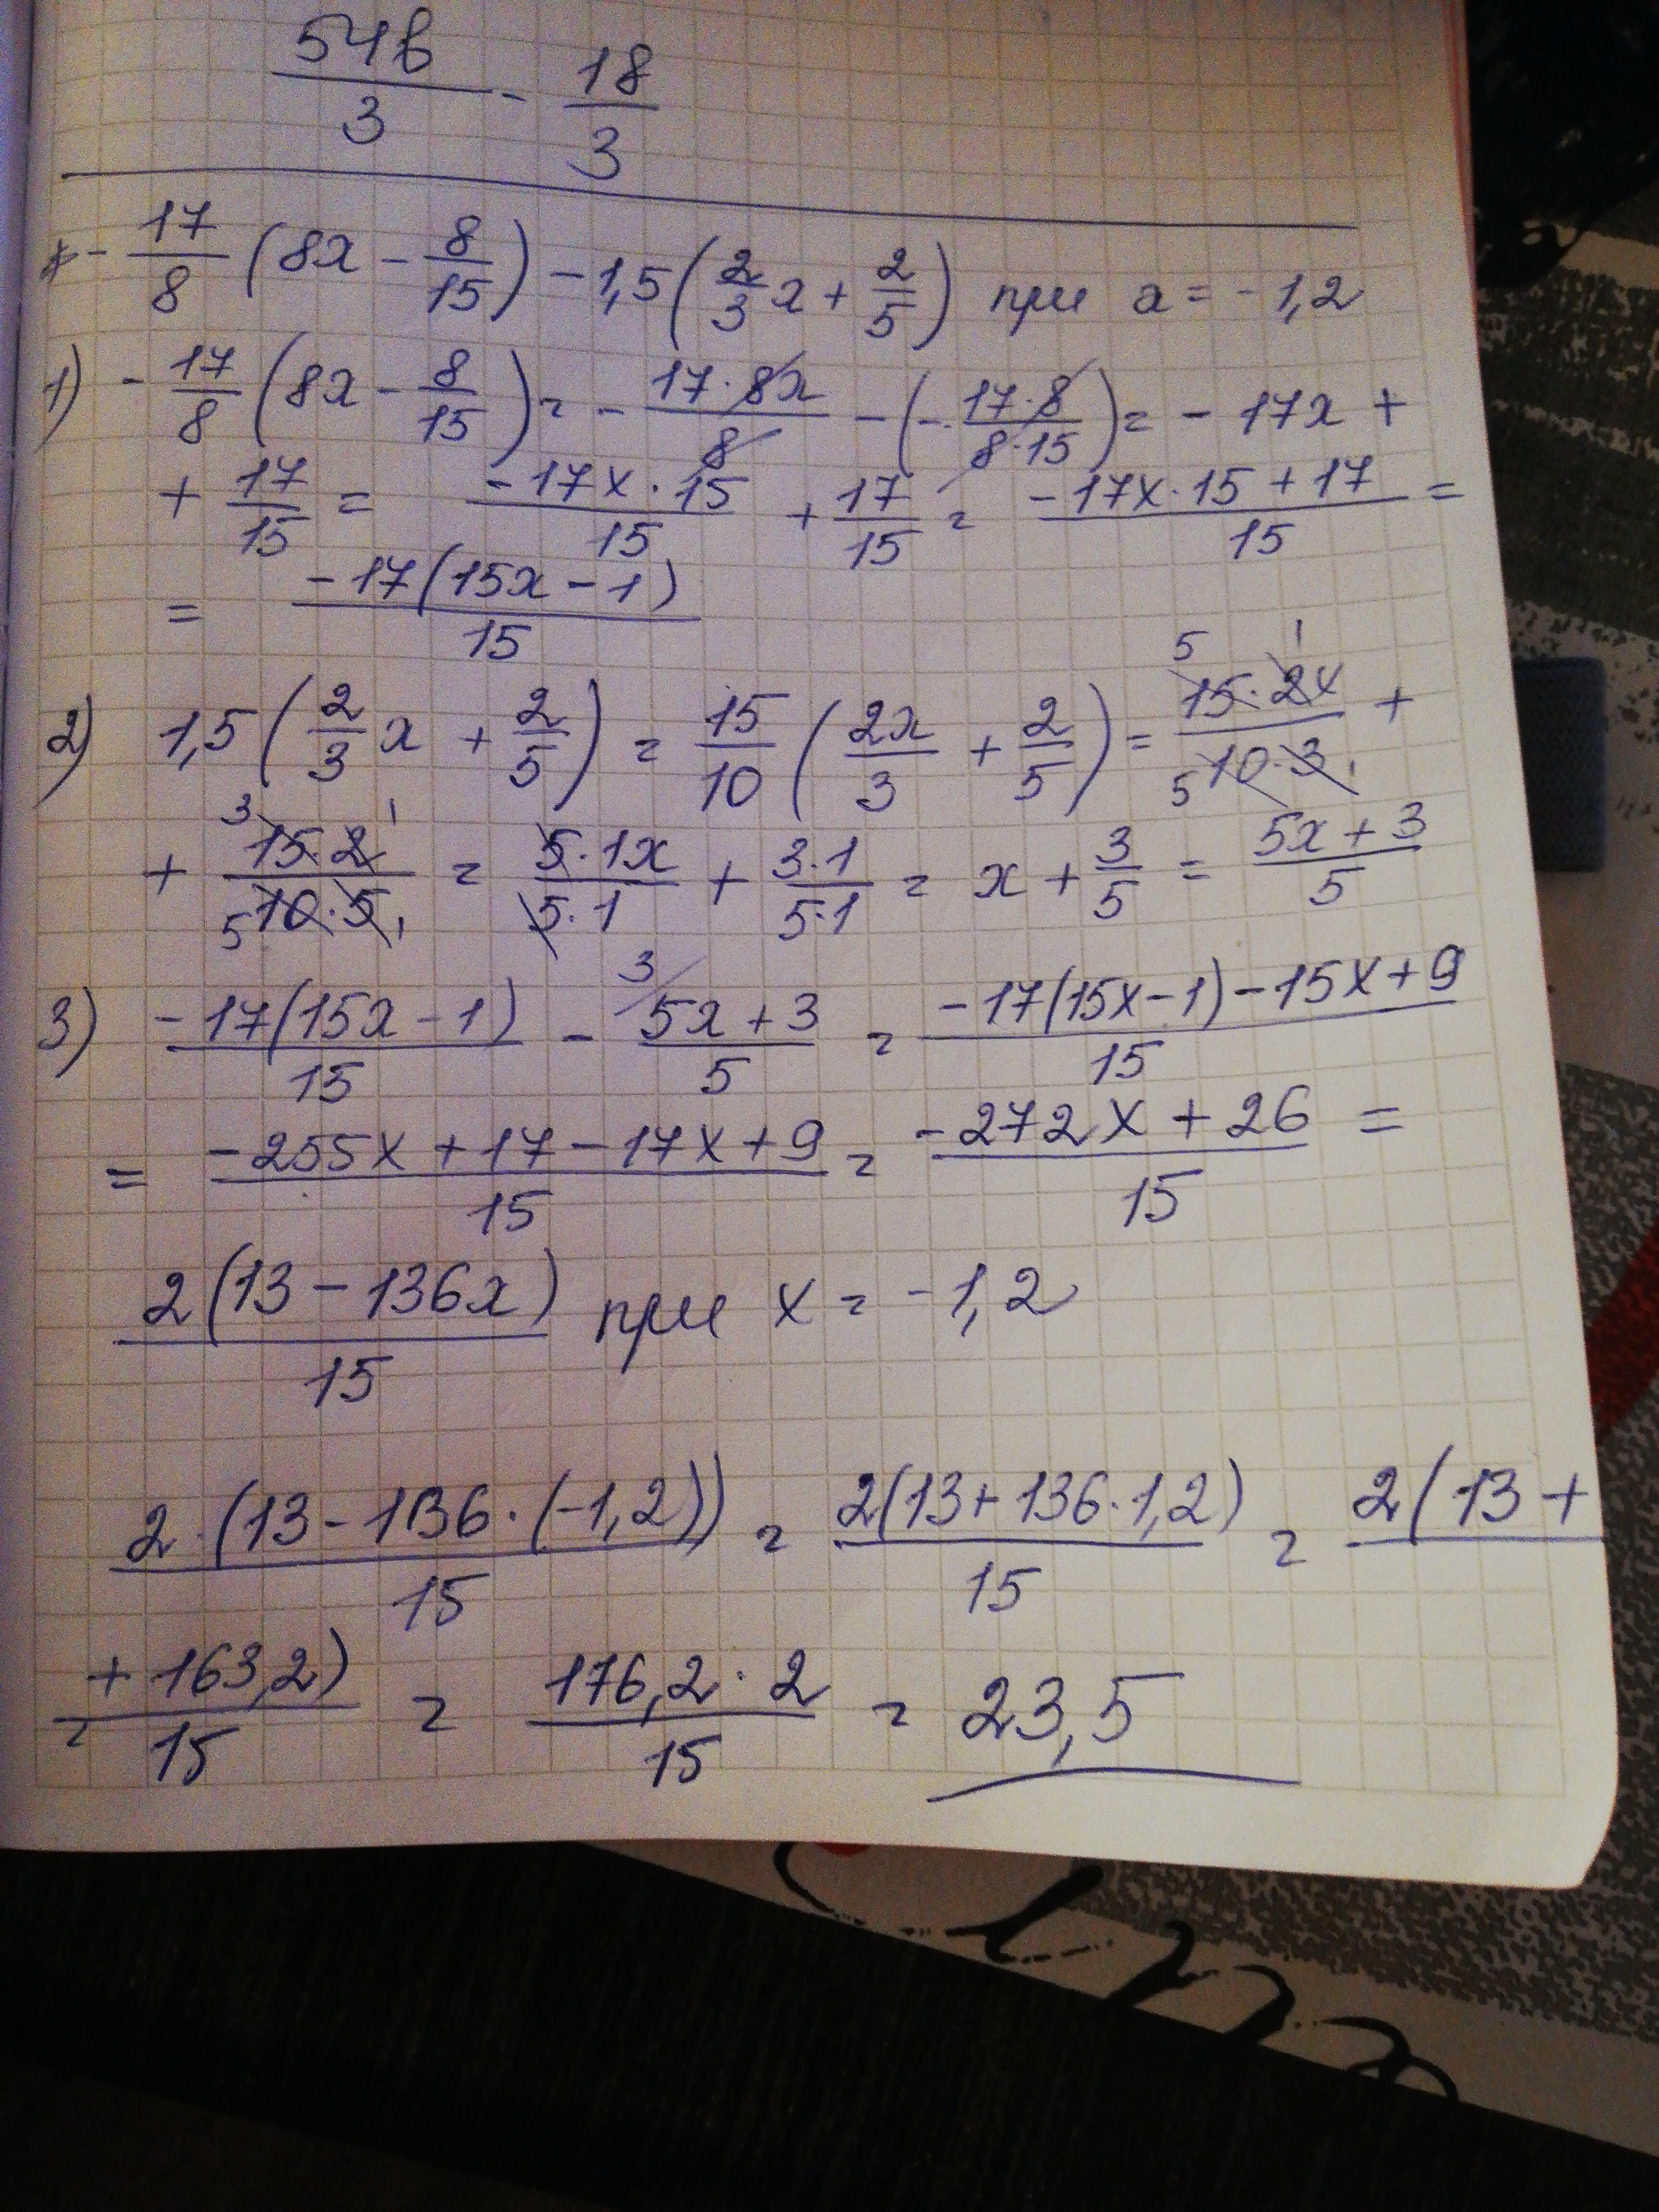 54в/3 - 18/3
* - 17/8 (8x - 8/15) - 1,5 (2/3 x + 2/5) при x = - 1,2
1) - 17/8 (8x - 8/15) = - 17·8x/8 - (- 17·8/8·15) = - 17x +
+ 17/15 = -17x·15/15 + 17/15 = -17x·15+17/15 =
= -17(15x-1)/15
2) 1,5 (2/3 x + 2/5) = 15/10 (2x/3 + 2/5) = 5 15·2x 1/5 10·3 1 +
+ 3 15·2 1/5 10·5 1 = 5·1x/5·1 + 3·1/5·1 = x + 3/5 = 5x+3/5
3) -17(15x-1)/15 - 3/ 5x+3/5 = -17(15x-1)-15x+9/15
= -255x+17-17x+9/15 = -272x+26/15 =
2(13-136x)/15 при x = -1,2
2·(13-136·(-1,2))/15 = 2(13+136·1,2)/15 = 2(13+
= +163,2)/15 = 176,2·2/15 = 23,5